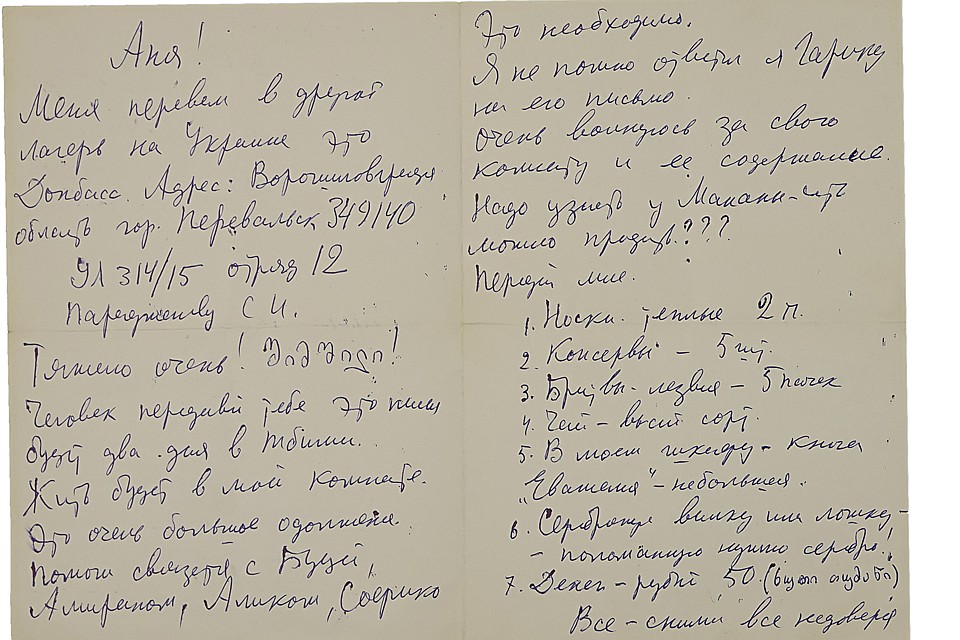 Аня!
Меня перевели в другой
лагерь на Украине это
Донбасс. Адрес: Ворошиловградская
область гор. Перевальск 349140
УЛ 314/15 отряд 12
Параджанову С И.
Тяжело очень!
Человек передавший тебе это письмо
будет два дня в Тбилиси.
Жить будет в моей комнате.
Это очень большое одолжение.
Помоги связаться с
Амираном, Аликом, Софико
Это необходимо.
Я не помню ответил я Гарику
на его письмо.
Очень волнуюсь за свою
комнату и ее содержание.
Надо узнать у
можно продать???
Передай мне.
1. Носки теплые 2 п.
2. Консервы – 5 шт.
3. Бритвы-лезвия – 5 пачек
4. Чай – высш сорт.
5. В моем шкафу – книга
– небольшая.
6. Серебряную вилку или ложку –
– поломанную нужно серебро!
7. Денег – рублей 50.
Все – сними все недоверия